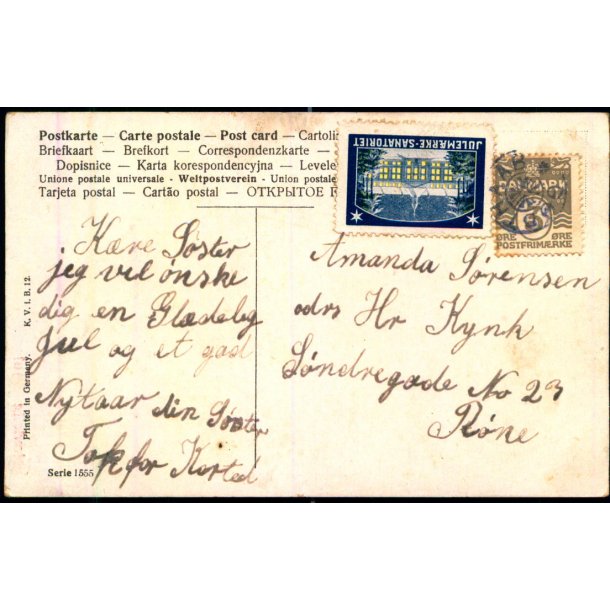 Postkarte — Carte postale — Post card — Cartoli
Briefkaart — Brefkort — Correspondenzkarte —
Dopisnice — Karta korespondencyjna — Levele
Unione postale universale - Weltpostverein - Union postale
Tarjeta postal — Cartão postal — ОТКРЫТОЕ
JULEMÆRKE-SANATORIET
DANMARK
5
ØRE ØRE
POSTFRIMÆRKE
Kære Søster
jeg vel ønske
dig en Glædelig
Jul og et god
Nytaar din Søster
Tak for Korted
Amanda Sørensen
adrs Hr Kynh
Søndregade No 23
Rône
Printed in Germany. K. V. i. B. 12.
Serie 1555